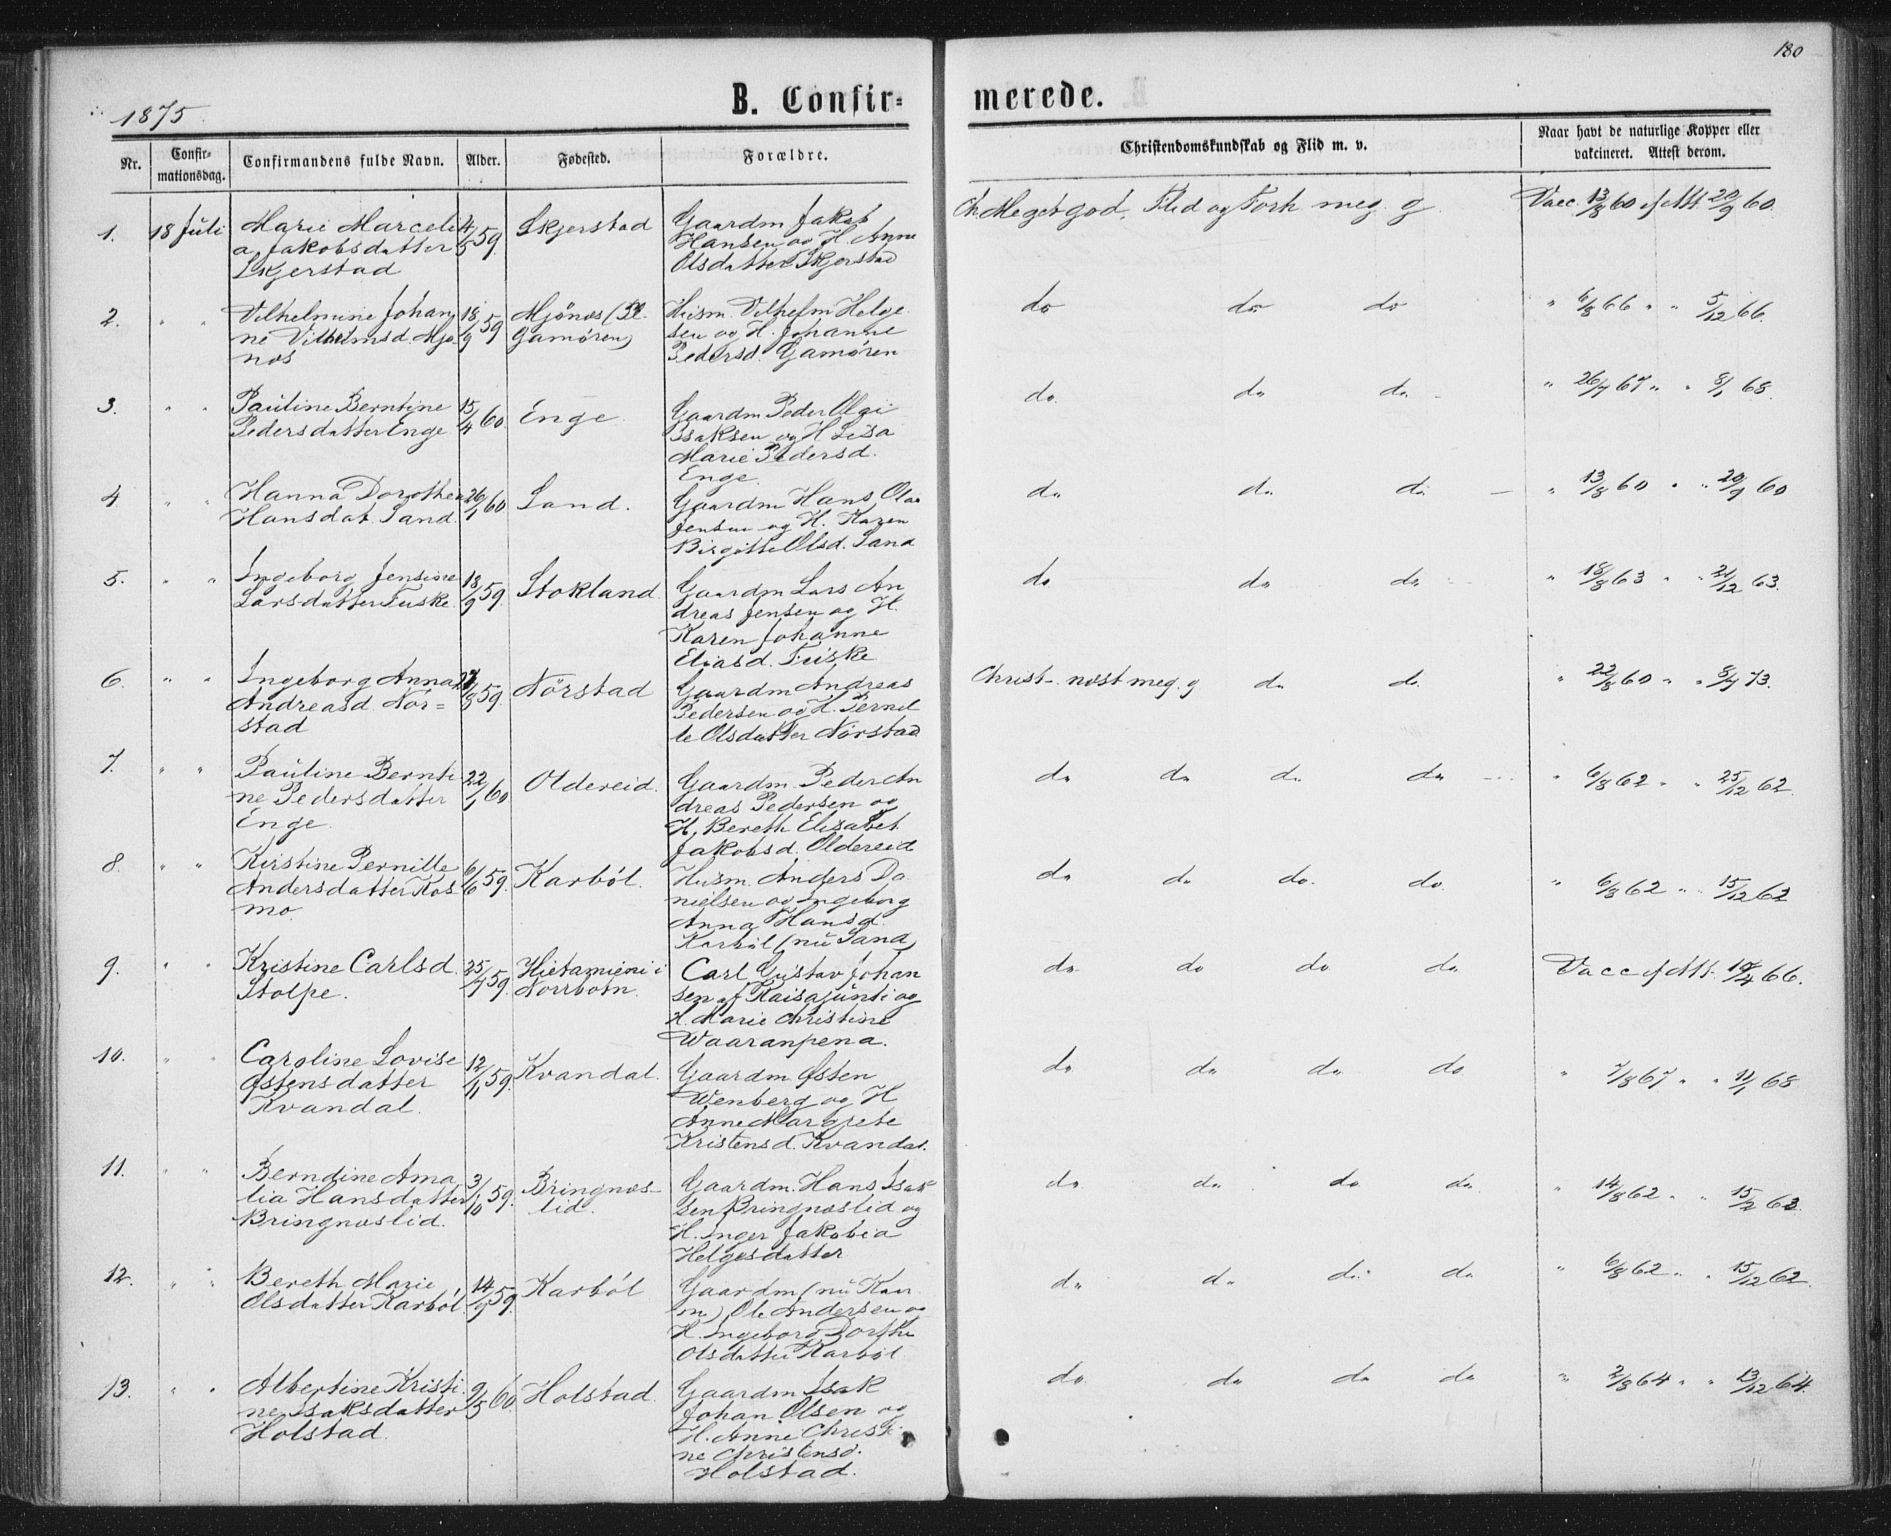 180
1875
B. Confir=
merede.
Nr.
Confir-
mationsdag.
Confirmandens fulde Navn.
Alder.
Fødested.
Forældre.
Christendomskundskab og Flid m. v.
Naar havt de naturlige Kopper eller
vakcineret. Attest derom.
1. 18 Juli
Marie Marceli
a Jakobsdatter
Skjerstad
4/5 59.
Skjerstad
Gaardm Jakob
Hansen og H. Anne
Olsdatter Skjerstad
Ch Meget god, Flid og Forh meg. g
Vacc. 13/8 60 ef Att. 20/9 60.
2. " "
Vilhelmine Johan
ne Vilhelmsd. Mjø
næs
18/9 59
Mjönæs (Pl.
Gamøren)
Husm. Vilhelm Helge
sen og H. Johanne
Pedersd. Gamøren
do do do
" 6/8 66 " " 5/12 66.
3. " "
Pauline Berntine
Pedersdatter Enge
15/4 60.
Enge.
Gaardm Peder Olai
Isaksen og H Lisa
Marie Pedersd.
Enge.
do. do do.
" 26/7 67 " " 8/1 68.
4 " "
Hanna Dorothea
Hansdat. Sand.
26/1 60
Sand.
Gaardm Hans Olai
Jensen og H. Karen
Birgitte Olsd. Sand
do do. do.
" 13/8 60 " " 20/9 60
5. " "
Ingeborg Jensine
Larsdatter Fuske.
18/9 59.
Stokland.
Gaardm Lars An
dreas Jensen og H.
Karen Johanne
Eliasd. Fuske
do do do
" 18/8 63 " " 21/12 63.
6. " "
Ingeborg Anna
Andreasd. Nör=
stad
59.
Nörstad
Gaardm Andreas
Pedersen og H. Pernil
le Olsdatter Nörstad
Christ. næst meg. g do do.
" 22/8 60 " " 8/7 73.
7. " "
Pauline Bernti
ne Pedersdatter
Enge.
22/1 60
Oldereid.
Gaardm. Peder An
dreas Pedersen og
H. Bereth Elisabet
Jakobsd. Oldereid
do do do. do
" 6/8 62 " " 25/12 62.
8. " "
Kirstine Pernille
Andersdatter Kos
mo.
6/6 59.
Karböl.
Husm. Anders Da
nielsen og Ingeborg
Anna Hansd.
Karböl (nu Sand)
do do do. do.
" 6/8 62 " " 15/12 62
9. " "
Kristine Carlsd.
Stolpe.
25/7 59.
Hietamieni i
Norrbotn.
Carl Gustav Johan
sen af Kaisajunti og
H. Marie Christine
Waaranpena.
do. do do do
Vacc ef Att. 19/4 66.
10. " "
Caroline Lovise
Østensdatter
Kvandal.
12/1 59.
Kvandal.
Gaardm. Østen
Wenberg og H
Anne Margrete
Kristensd. Kvandal.
do do do. do
" 7/8 67. " " 11/1 68
11. " "
Berndine Ama
lia Hansdatter
Bringnæslid.
3/10 59.
Bringnæs-
lid.
Gaardm. Hans Isak
sen Bringnæslid og
H. Inger Jakobia
Helgesdatter
do do. do do.
" 14/8 62 " " 15/2 63.
12. " "
Bereth Marie
Olsdatter Karböl.
14/9 59.
Karböl
Gaardm (nu Kaar
m) Ole Andersen og
H. Ingeborg Dorthe
Olsdatter Karböl
do do do. do
" 6/8 62 " " 15/12 62.
13. " "
Albertine Kristi
ne Isaksdatter
Holstad.
9/5 60.
Holstad.
Gaardm Isak
Johan Olsen og
H. Anne Christi
ne Christensd.
Holstad.
do. do do do
" 2/8 64 " " 13/12 64.